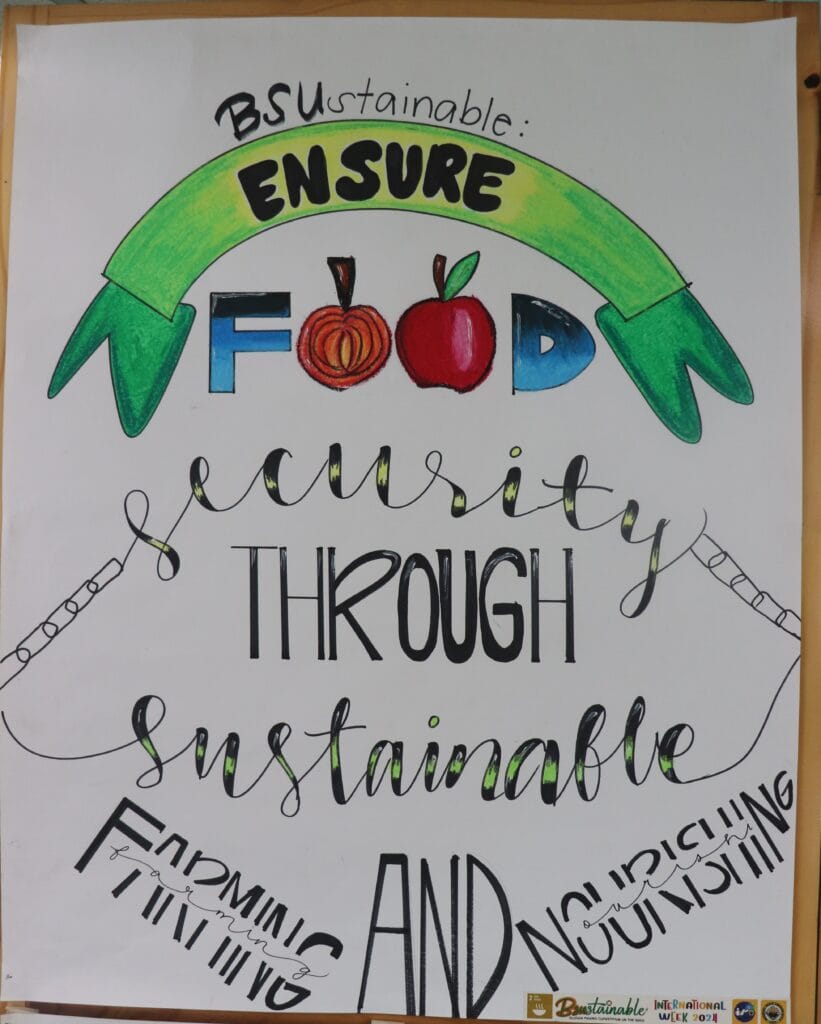 BSUstainable:
ENSURE
FOOD
security
THROUGH
sustainable
FARMING
farming
AND
NOURISHING
nourishing
Bsustainable
INTERNATIONAL
WEEK 2024